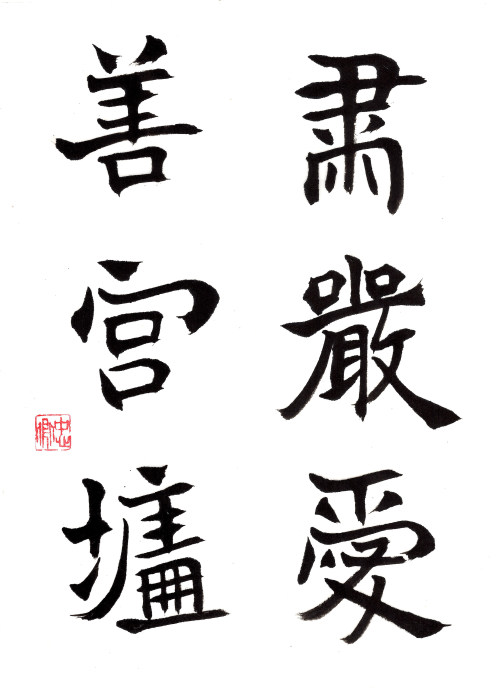 肅嚴愛
善宮